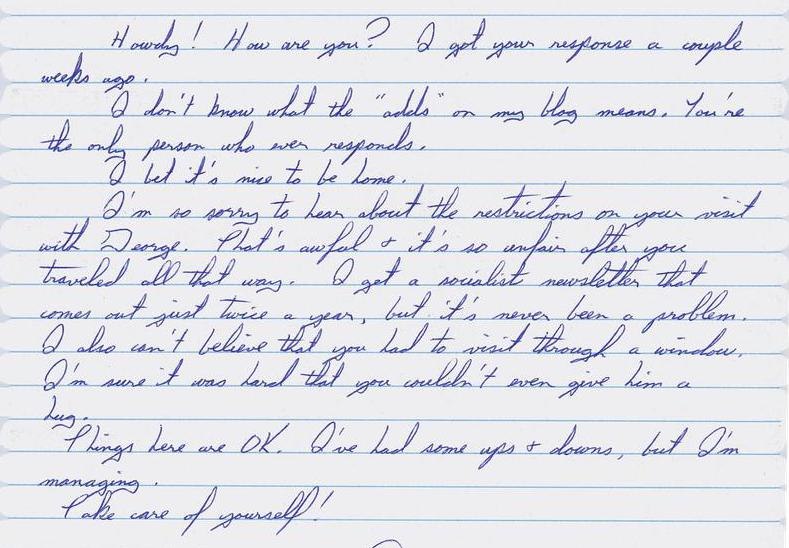 Howdy! How are you? I got your response a couple
weeks ago.
I don't know what the "adds" on my blog means. You're
the only person who ever responds.
I bet it's nice to be home.
I'm so sorry to hear about the restrictions on your visit
with George. That's awful & it's so unfair after you
traveled all that way. I get a socialist newsletter that
comes out just twice a year, but it's never been a problem.
I also can't believe that you had to visit through a window.
I'm sure it was hard that you couldn't even give him a
hug.
Things here are OK. I've had some ups & downs, but I'm
managing.
Take care of yourself!